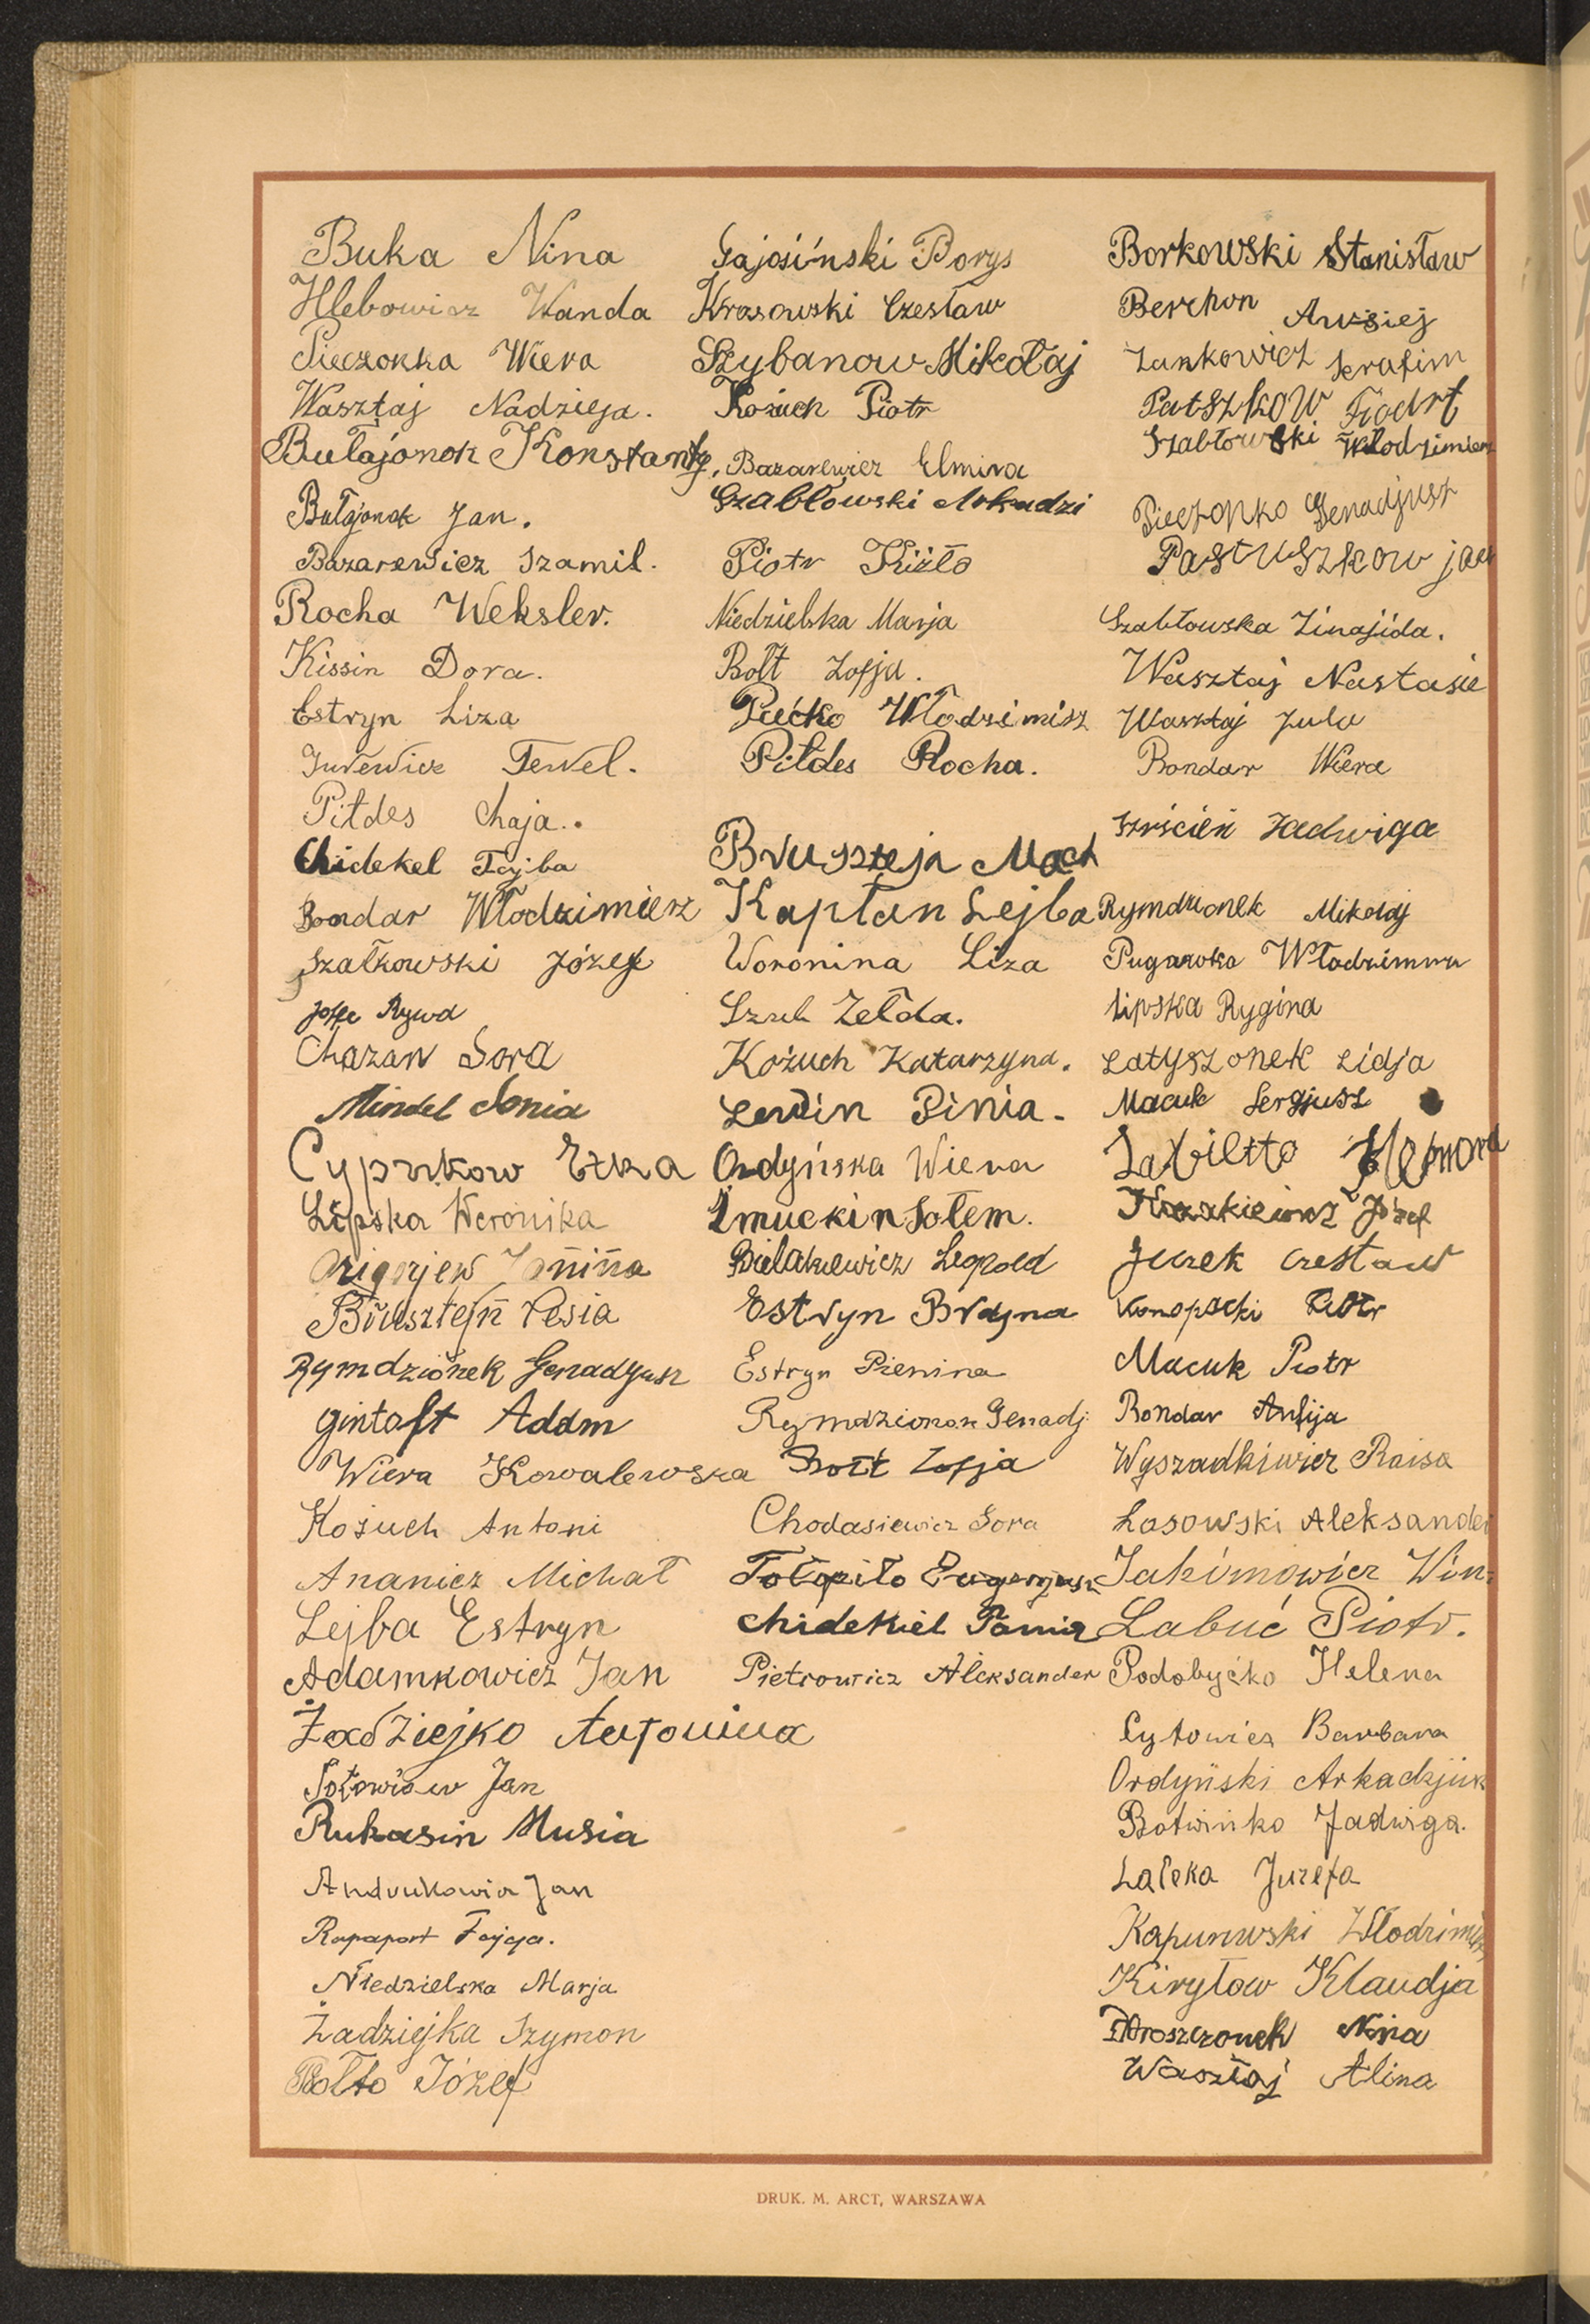 Buka Nina
Hlebowicz Wanda
Pieczonka Wiera
Wasztaj Nadzieja.
Bułajonok Konstanty.
Bułajonok Jan.
Bazarewicz Szamil.
Rocha Weksler.
Kissin Dora.
Estryn Liza
Jurewicz Tewel.
Piłdes Chaja..
Chidekel Tajba
Bondar Włodzimierz
Szałkowski Józef
Joffe Rywa
Chazan Sora
Mindel Sonia
Cyprukow Etka
Lipska Weronika
Grigorjew Janina
Brusztejn Pesia
Rymdzionek Genadjusz
Gintoft Adam
Wiera Kowalewska
Kożuch Antoni
Ananicz Michał
Lejba Estryn
Adamkowicz Jan
Żadziejko Antonina
Sołowiow Jan
Rukasin Musia
Andrukowicz Jan
Rapaport Fejga.
Niedzielska Marja
Żadziejka Szymon
Bołto Józef
Gajosiński Borys
Krasowski Czesław
Szybanow Mikołaj
Kożuch Piotr
Bazarewicz Elmira
Szabłowski Arkadzi
Piotr Kiżło
Niedzielska Marja
Bołt Zofja.
Piećko Włodzimisz
Piłdes Rocha.
Bruszteja Mach
Kapłan Lejba
Woronina Liza
Szul Zełda.
Kożuch Katarzyna.
Lewin Pinia.
Ordyńska Wiera
Zmuckin Sołem.
Bielakiewicz Leopold
Estryn Brajna
Estryn Pienina
Rymdzionok Genadj.
Bołt Zofja
Chodasiewicz Sora
Tołopiło Eugenjusz
Chidekiel Tamia
Pietrowicz Aleksander
Borkowski Stanisław
Berchon Awsiej
Zankowicz Serafim
Patszkow Fiodrt
Szabłowski Włodzimierz
Pieczonko Genadjusz
Pastuszkow jan
Szabłowska Zinajida.
Wasztaj Nastasie
Wasztaj Jula
Bondar Wiera
Szyścień Jadwiga
Rymdzionek Mikołaj
Pugawka Włodzimierz
Lipska Rygina
Łatyszonek Lidja
Macuk Sergjusz
Józef
Jurek Czesław
Konopacki Piotr
Macuk Piotr
Bondar Anfija
Wyszadkiewicz Raisa
Łosowski Aleksander
Jakimowicz Win
Labuć Piotr.
Podobyćko Helena
Cytowicz Barbara
Ordyński Arkadjusz
Botwinko Jadwiga.
Łaleka Juzefa
Kapunowski Włodzimierz
Kiryłow Klaudja
Mroszczonek Nina
Wasztaj Alina
DRUK. M. ARCT, WARSZAWA